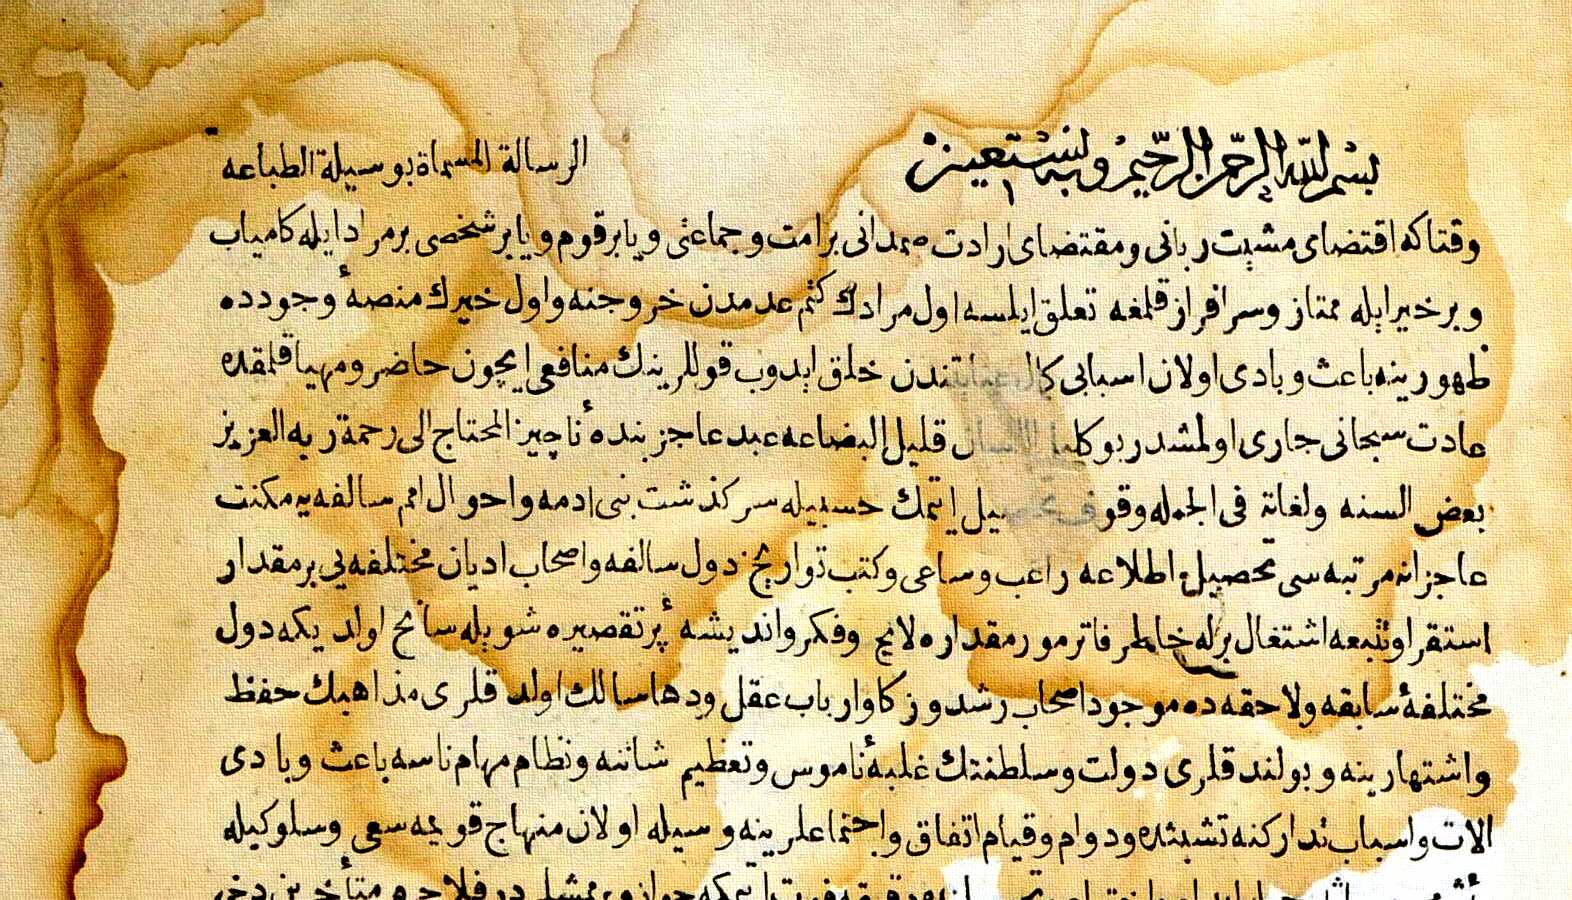 بسم الله الرحمن الرحيم وبه نستعين
الرسالة المسماة بوسيلة الطباعه
وقتاكه اقتضاى مشيت ربانى ومقتضاى ارادت صمدانى برامت وجماعتى ويابرقوم ويابر شخصى برمراد ايله كامياب
وبرخير ايله ممتاز وسرافراز قلمغه تعلق ايلسه اول مرادك كتم عدمدن خروجنه واول خيرك منصهٔ وجودده
ظهورينه باعث وبادى اولان اسبابى كمال عنايتندن خلق ايدوب قوللرينك منافعى ايچون حاضر ومهيا قلمقده
عادت سبحانى جارى اولمشدر بو كليل اللسان قليل البضاعه عبد عاجز بندهٔ ناچيز المحتاج الى رحمة ربه العزيز
بعض السنه ولغاته فى الجمله وقوف تحصيل ايتمك حسبيله سركذشت بنى ادمه واحوال امم سالفه يه مكنت
عاجزانه مرتبه سى تحصيل اطلاعه راغب وساعى وكتب تواريخ دول سالفه واصحاب اديان مختلفه يى برمقدار
استقرا وتتبعه اشتغال برله خاطر فاتر مور مقداره لايح وفكر وانديشهٔ پر تقصيره شويله سانح اولديكه دول
مختلفهٔ سابقه ولاحقه ده موجود اصحاب رشد وزكا وارباب عقل ودها سالك اولدقلرى مذاهبك حفظ
واشتهارينه وبولندقلرى دولت وسلطنتك غلبهٔ ناموس وتعظيم شاننه ونظام مهام ناسه باعث وبادى
الات واسباب تداركنه تشبثده ودوام وقيام اتفاق واجتماعلرينه وسيله اولان منهاج قويمه سعى وسلوكيله